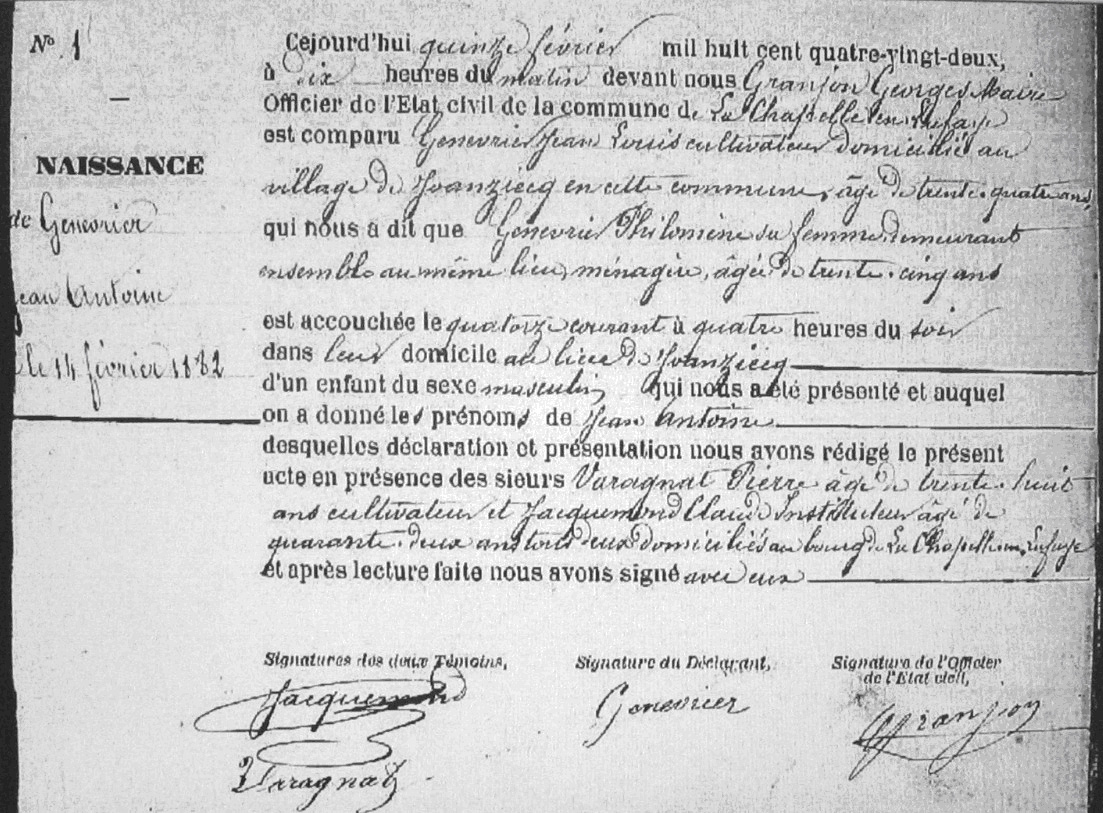 N° 1
NAISSANCE
de Genevrier
Jean Antoine
le 14 février 1882
Cejourd'hui quinze février mil huit cent quatre-vingt-deux,
à dix heures du matin devant nous Granjon Georges Maire
Officier de l'Etat civil de la commune de La Chapelle en Lafaye
est comparu Genevrier Jean Louis cultivateur domicilié au
village de en cette commune, âgé de trente-quatre ans,
qui nous a dit que Genevrier Philomène sa femme demeurant
ensemble au même lieu, ménagère, âgée de trente-cinq ans
est accouchée le quatorze courant à quatre heures du soir
dans leur domicile au lieu de
d'un enfant du sexe masculin qui nous a été présenté et auquel
on a donné les prénoms de Jean Antoine
desquelles déclaration et présentation nous avons rédigé le présent
acte en présence des sieurs Varagnat Pierre âgé de trente-huit
ans cultivateur et Jacquemond Claude Instituteur âgé de
quarante-deux ans tous deux domiciliés au bourg de La Chapelle en Lafaye
et après lecture faite nous avons signé avec eux
Signatures des deux Témoins,
Jacquemond
Varagnat
Signature du Déclarant,
Genevrier
Signature de l'Officier
de l'Etat civil,
Granjon